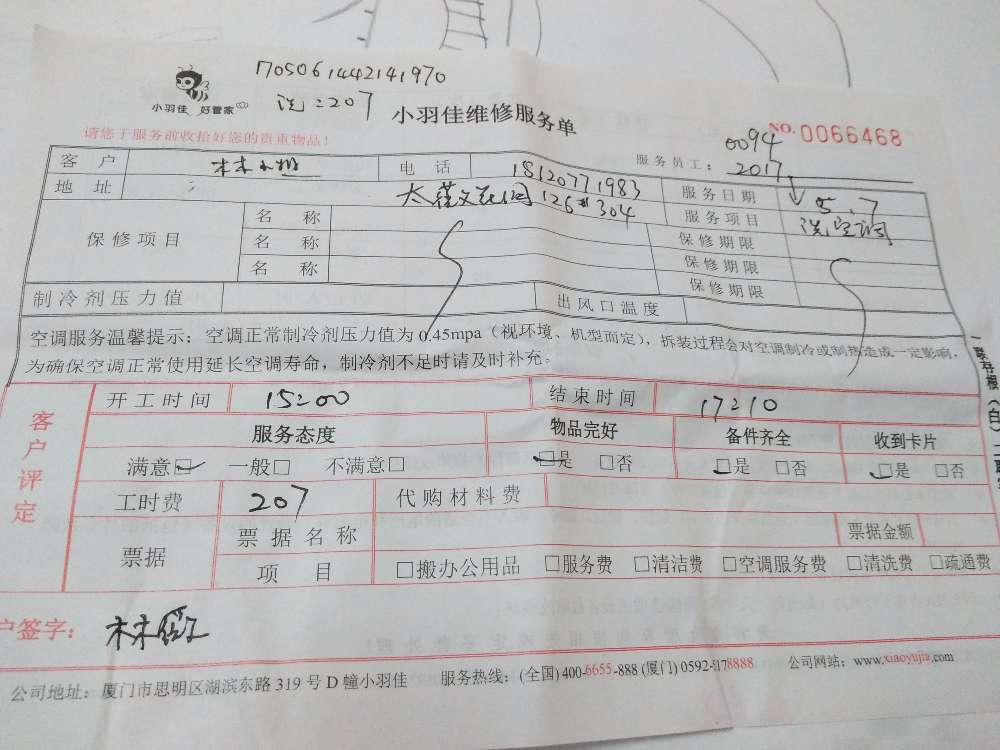 170506144214​1970
洗:207
小羽佳 好管家
小羽佳维修服务单
NO. 0066468
请您于服务前收拾好您的贵重物品!
0094
服务员工: 2017
客户 电话 18120771983 服务日期 5.7
地址 126#304 服务项目 洗空调
保修项目 名称 保修期限
名称 保修期限
名称 保修期限
制冷剂压力值 出风口温度
空调服务温馨提示:空调正常制冷剂压力值为0.45mpa(视环境、机型而定),拆装过程会对空调制冷或制热造成一定影响,
为确保空调正常使用延长空调寿命,制冷剂不足时请及时补充。
客户评定
开工时间 15:00 结束时间 17:10
服务态度 物品完好 备件齐全 收到卡片
满意□ 一般□ 不满意□ □是 □否 □是 □否 □是 □否
工时费 207 代购材料费
票据 票据名称 票据金额
项目 □搬办公用品 □服务费 □清洁费 □空调服务费 □清洗费 □疏通费
户签字:
公司地址:厦门市思明区湖滨东路319号D幢小羽佳 服务热线:(全国)400-6655-888(厦门)0592-8178888 公司网站:www.xiaoyujia.com
一联存根(白)